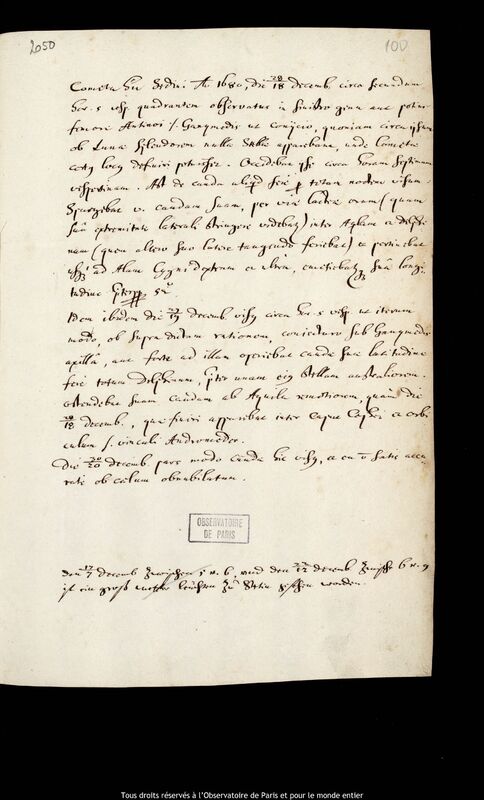 2050
100
Cometa hic Sedini Ao 1680, die 28/18 decemb. circa secundum
hor. 5 vesp. quadrantem observatus in sinistro genu aut potius
femore Antinoi s. Ganymedis ut conjicio, quoniam circa ipsum
ob Lunæ splendorem nullæ Stellæ apparebant, unde Cometæ
locus definiri potuisset. Occidebat ipse circa horam septimam
vespertinam. At de cauda aliquid fere per totam noctem visum.
Spargebat v. caudam suam, per viæ lacteæ oram (quam
sua extremitate laterali stringere videbatur) inter Aquilam et delphi-
nam (quem altero suo latere tangendo feriebat) et pertinebat
usque ad Alam Cygni dextram et ultra, emetiebaturque sua longi-
tudine
Idem ibidem die 29/19 decemb. visus circa hor. 5 vesp. ut iterum
modo, ob supra dictam rationem, conjecturo sub Ganymedis
axilla, aut forte ad illam operiebat cauda suæ latitudine
fere totum Delphinum, præter unam ejus stellam australiorem.
Ostendebat suam caudam ab Aquila remotiorem, quam die
28/18 decemb., quæ finiri apparebat inter caput Cephei et orbi-
culum s. vinculi Andromedæ.
Die 30/20 decemb. pars modo caudæ hic visa, et ea non satis accu-
rate ob cœlum obnubilatum.
OBSERVATOIRE
DE PARIS
den 17/7 decemb zwischen 5 u. 6, und den 22/12 decemb zwisch. 6 u. 7
ist ein groß leuchten zu Stetin gesehen worden.
Tous droits réservés à l'Observatoire de Paris et pour le monde entier